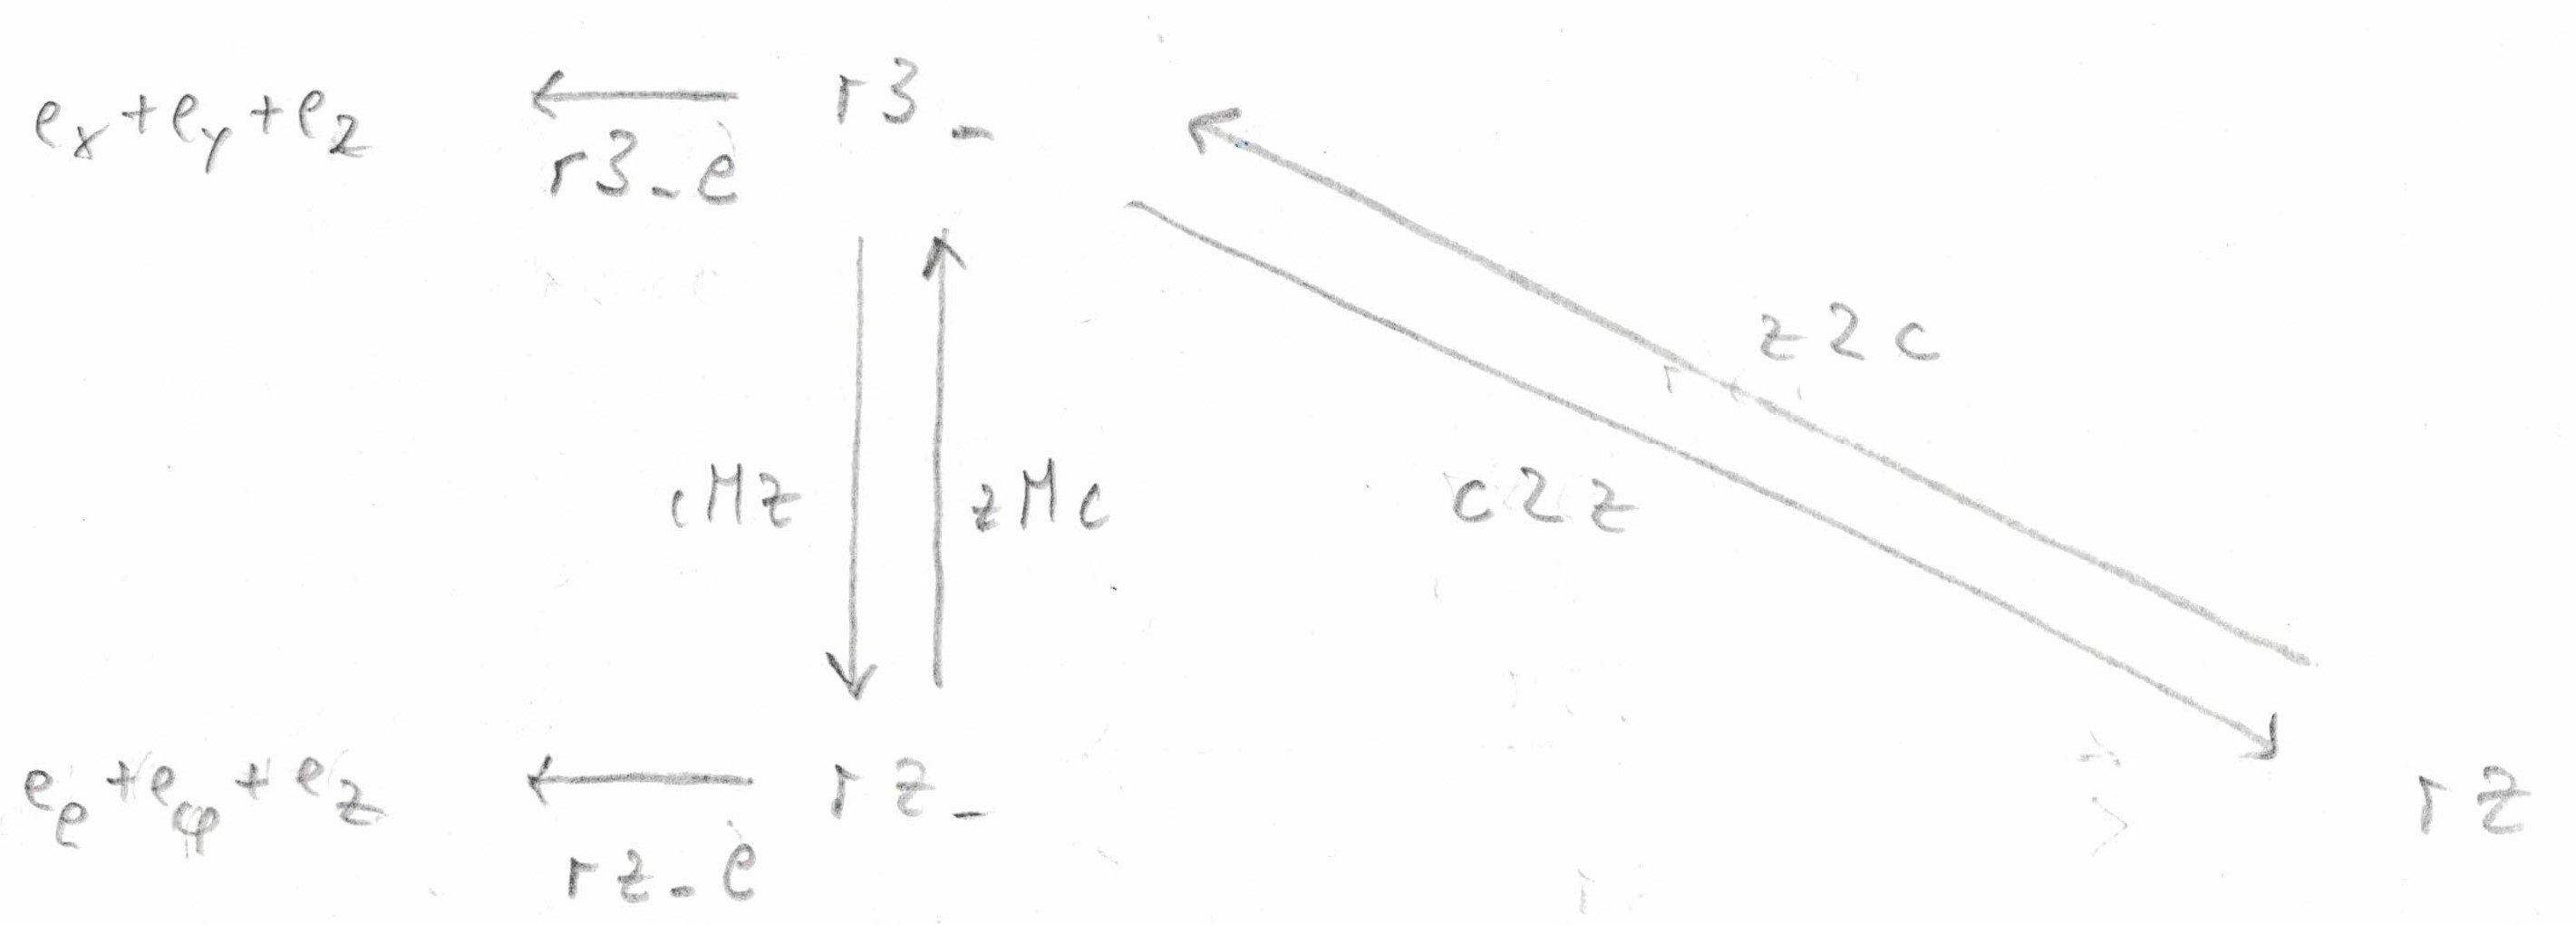 ex+ey+ez r3_
r3_e
z2c
cMz zMc c2z
eρ+eφ+ez rz_ rz
rz_e